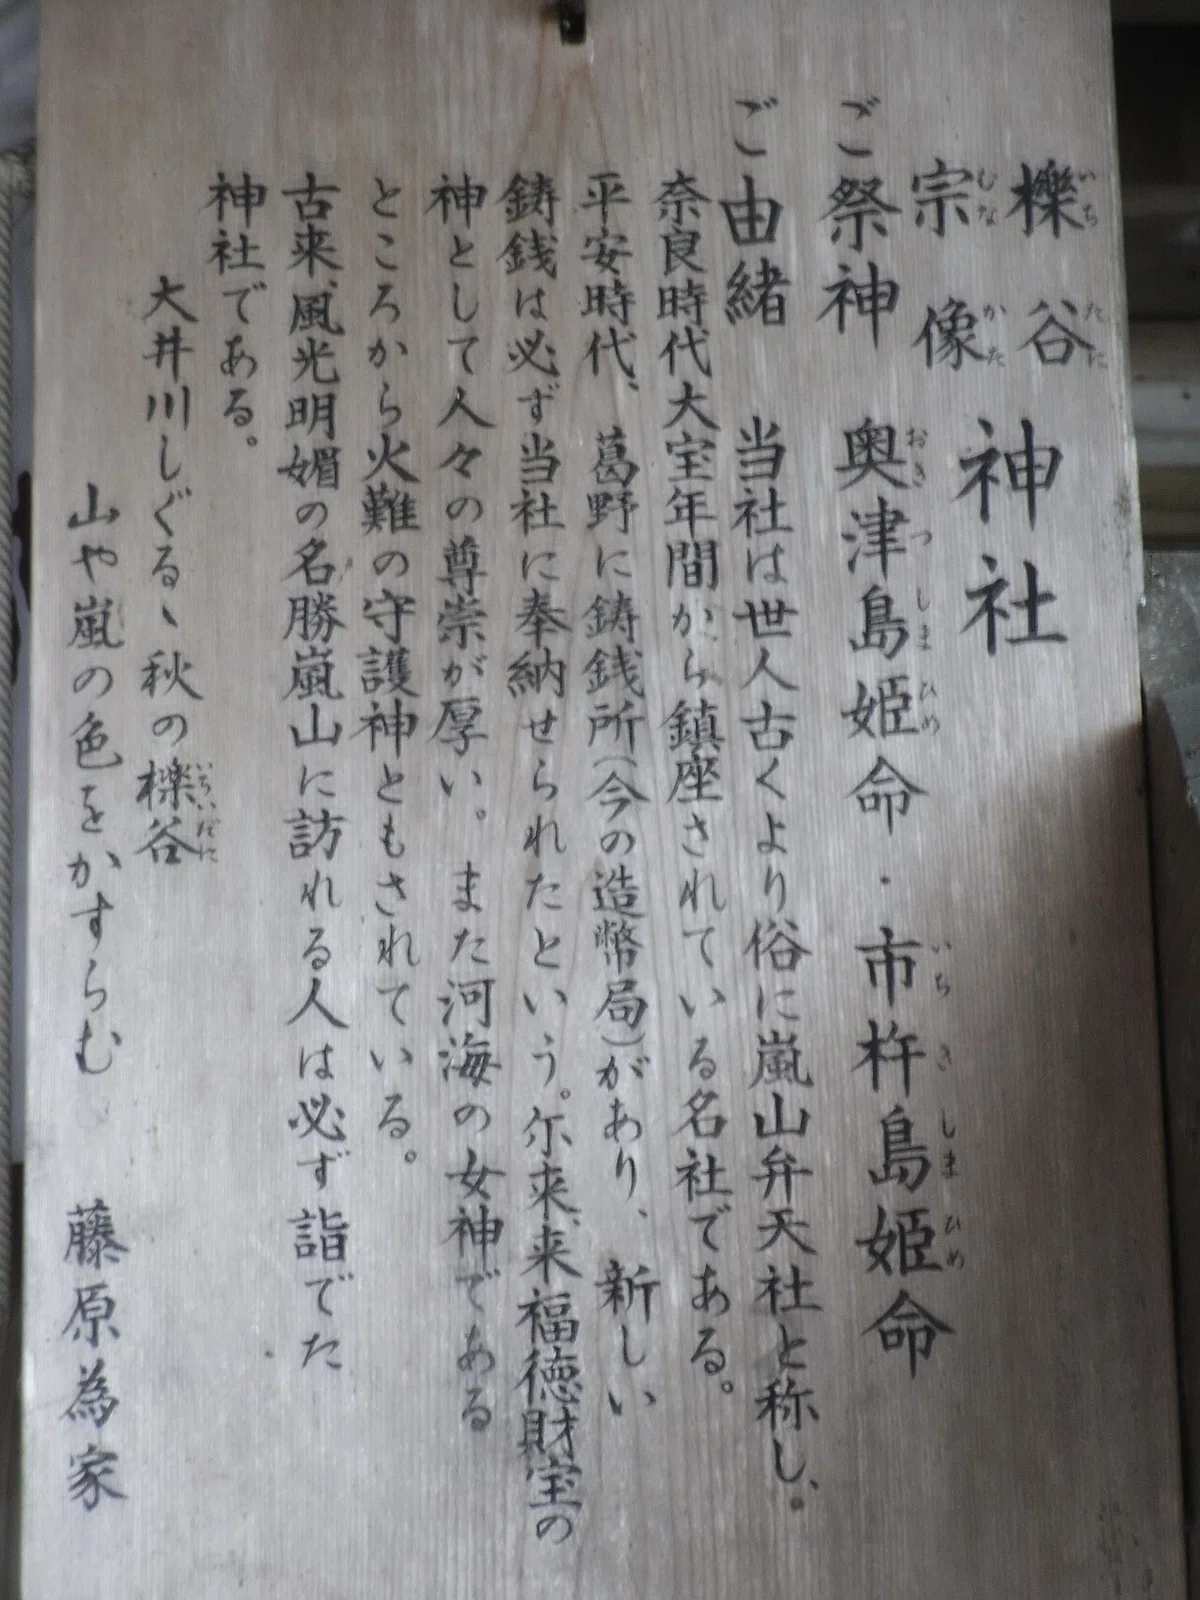 櫟谷
宗像
神社
ご祭神 奥津島姫命・市杵島姫命
ご由緒 当社は世人古くより俗に嵐山弁天社と称し、
奈良時代大宝年間から鎮座されている名社である。
平安時代、葛野に鋳銭所(今の造幣局)があり、新しい
鋳銭は必ず当社に奉納せられたという。尓来、来福徳財宝の
神として人々の尊崇が厚い。また河海の女神である
ところから火難の守護神ともされている。
古来、風光明媚の名勝嵐山に訪れる人は必ず詣でた
神社である。
大井川しぐるゝ秋の櫟谷
山や嵐の色をかすらむ 藤原為家
いち たに
むな かた
おき つ しま ひめ
いち き しま ひめ
いちいだに